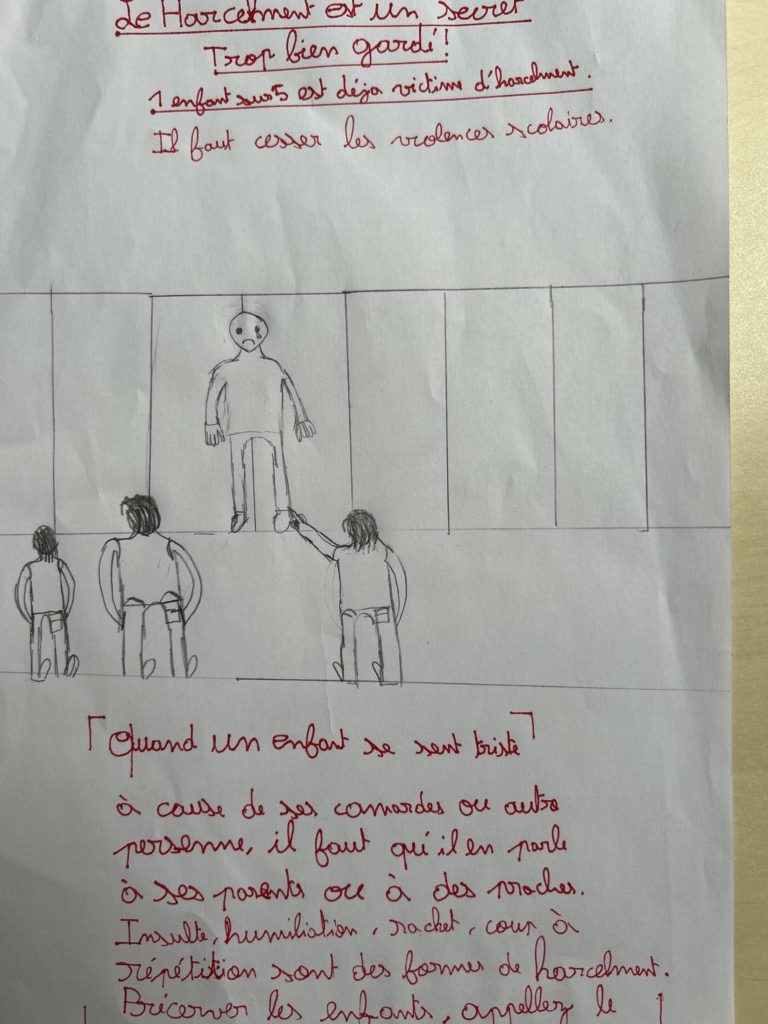 Le Harcelment est un secret
Trop bien gardé!
1 enfant sur 5 est déja victime d'harcelment.
Il faut cesser les violences scolaires.
Quand un enfant se sent triste
à cause de ses camardes ou autre
persenne, il faut qu'il en parle
à ses parents ou à des proches.
Insulte, humiliation, racket, coup à
répétition sont des formes de harcelment.
Précerver les enfants, appellez le